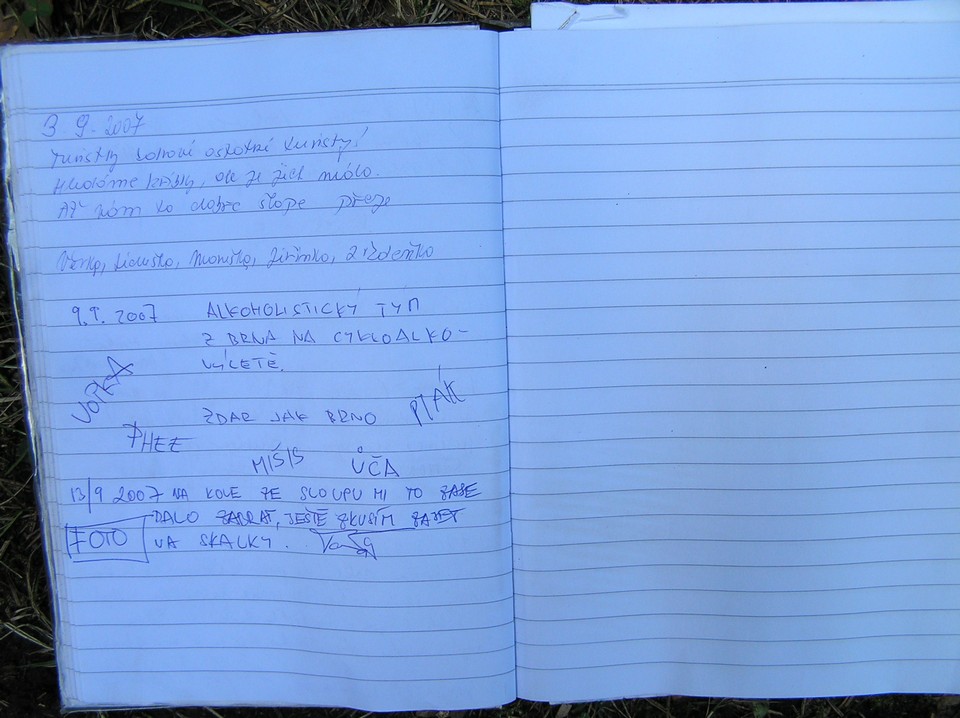 3. 9. 2007
Turistky zdraví ostatní turisty!
Hledáme krásy, ale je jich málo.
Ať nám to dobře šlape přeje
Věrka, Liduška, Maruška, Jiřinka, Zdeňka
9.9. 2007 ALKOHOLISTICKÝ TÝM
Z BRNA NA CYKLOALKO-
VÝLETĚ.
VOTKA
ZDAR JAK BRNO PTÁK
PHEE
MÍŠIS ŮČA
13/9 2007 NA KOLE ZE SLOUPU MI TO ZASE
DALO ZABRAT, JEŠTĚ ZKUSÍM ZAJET
FOTO NA SKALKY.